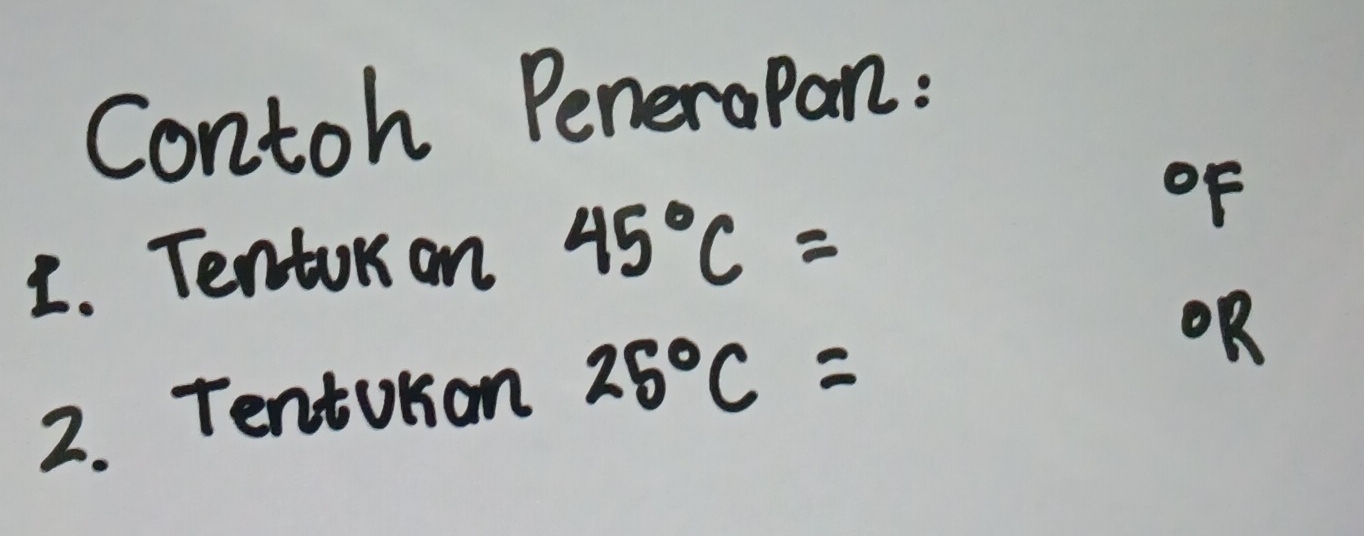 Contoh Penerapan:
1. Tentukan 45°C = °F
2. Tentukan 25°C = °R